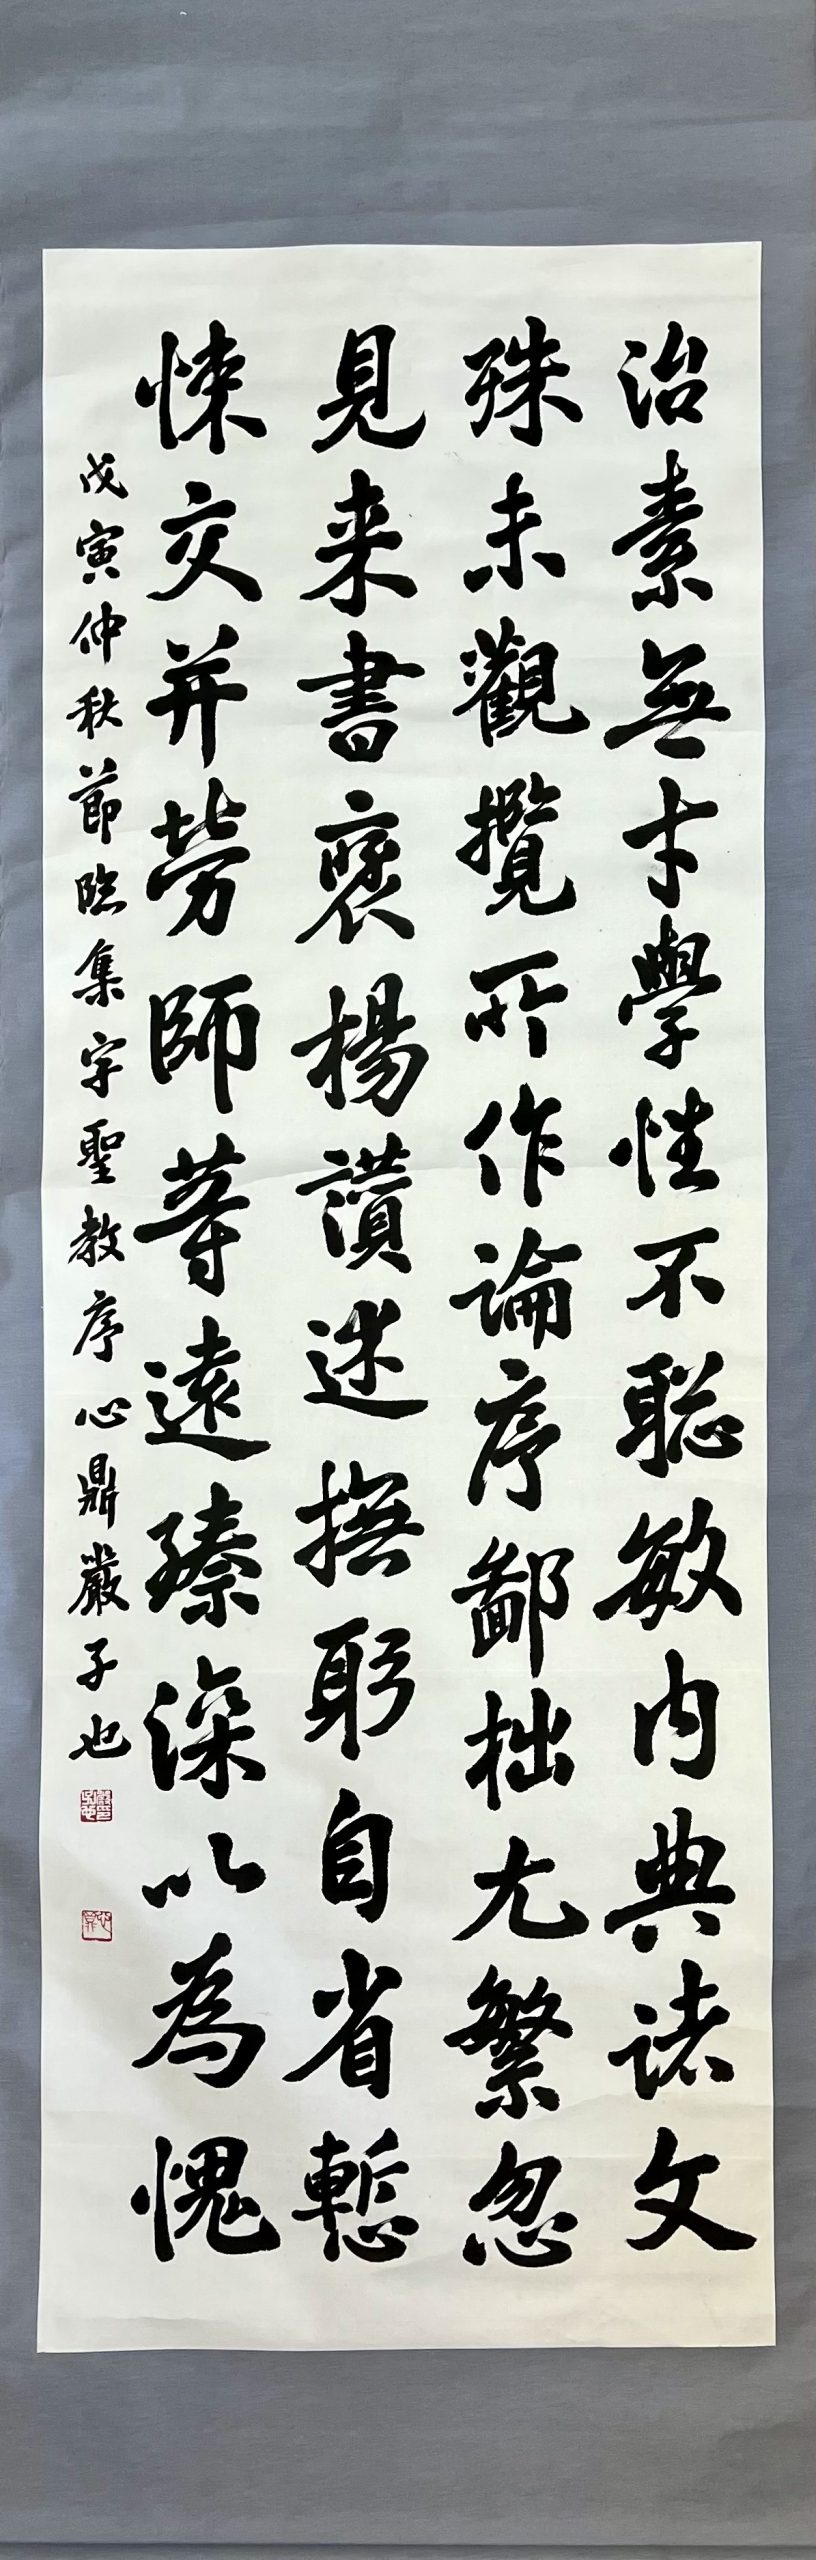 治素無才學性不聡敏内典諸文
殊未觀攬所作論序鄙拙尤繁忽
見来書褒楊讃述撫躬自省慙
悚交并勞師等遠臻深以為愧
戊寅仲秋節臨集字聖教序心鼎嚴子也